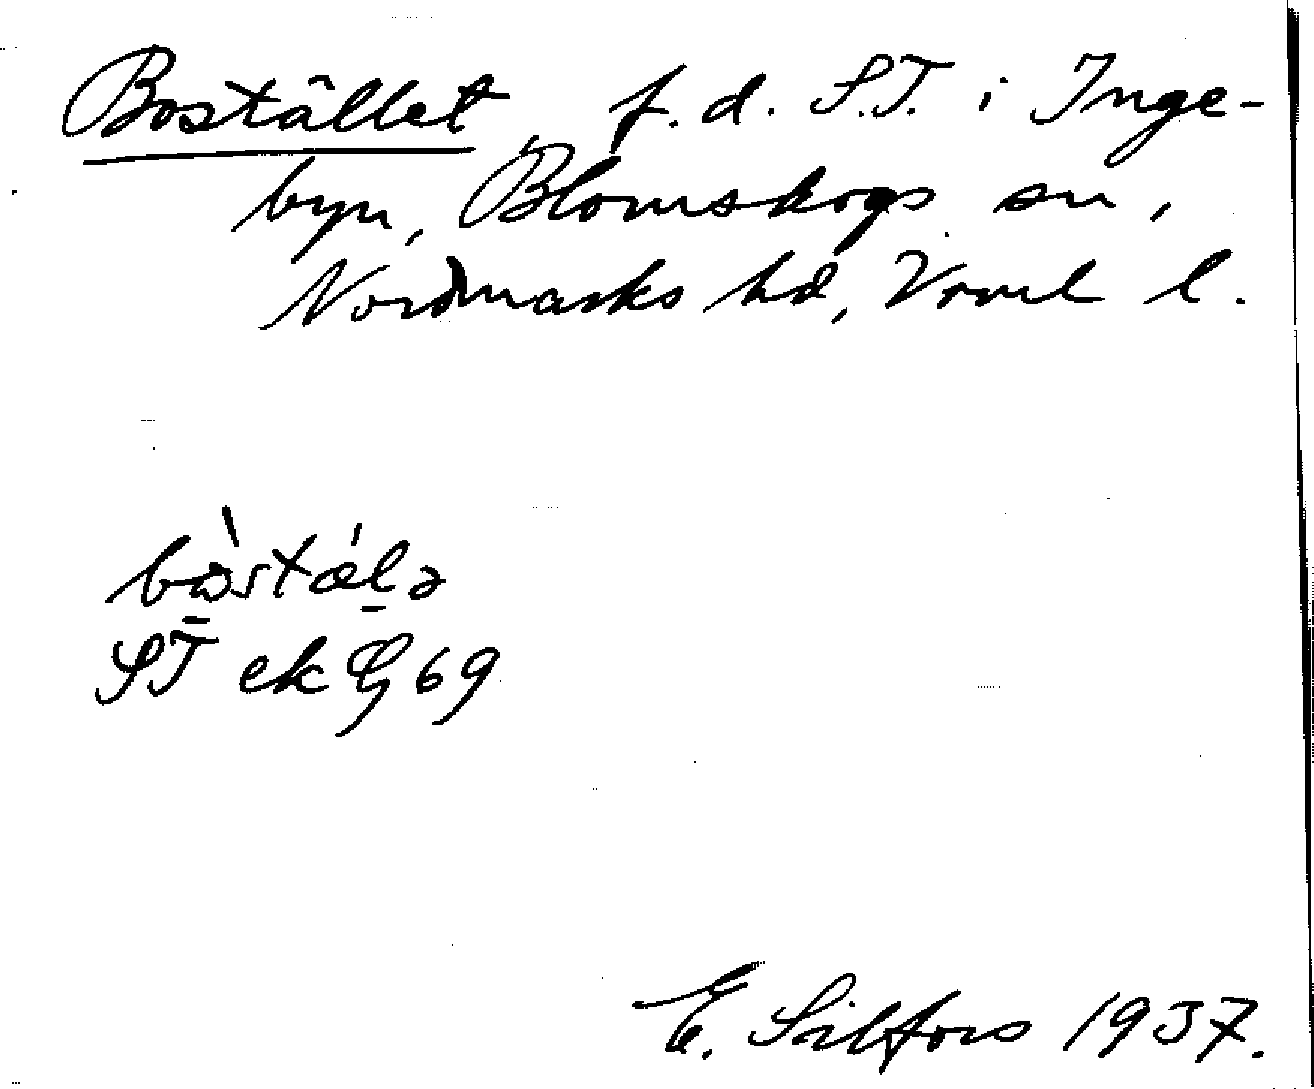 Bostället, f.d. S.T. i Inge-
byn, Blomskogs sn,
Nordmarks hd, Vrml l.
bòstǽlə
ST ek 69
E. Silfors 1937.